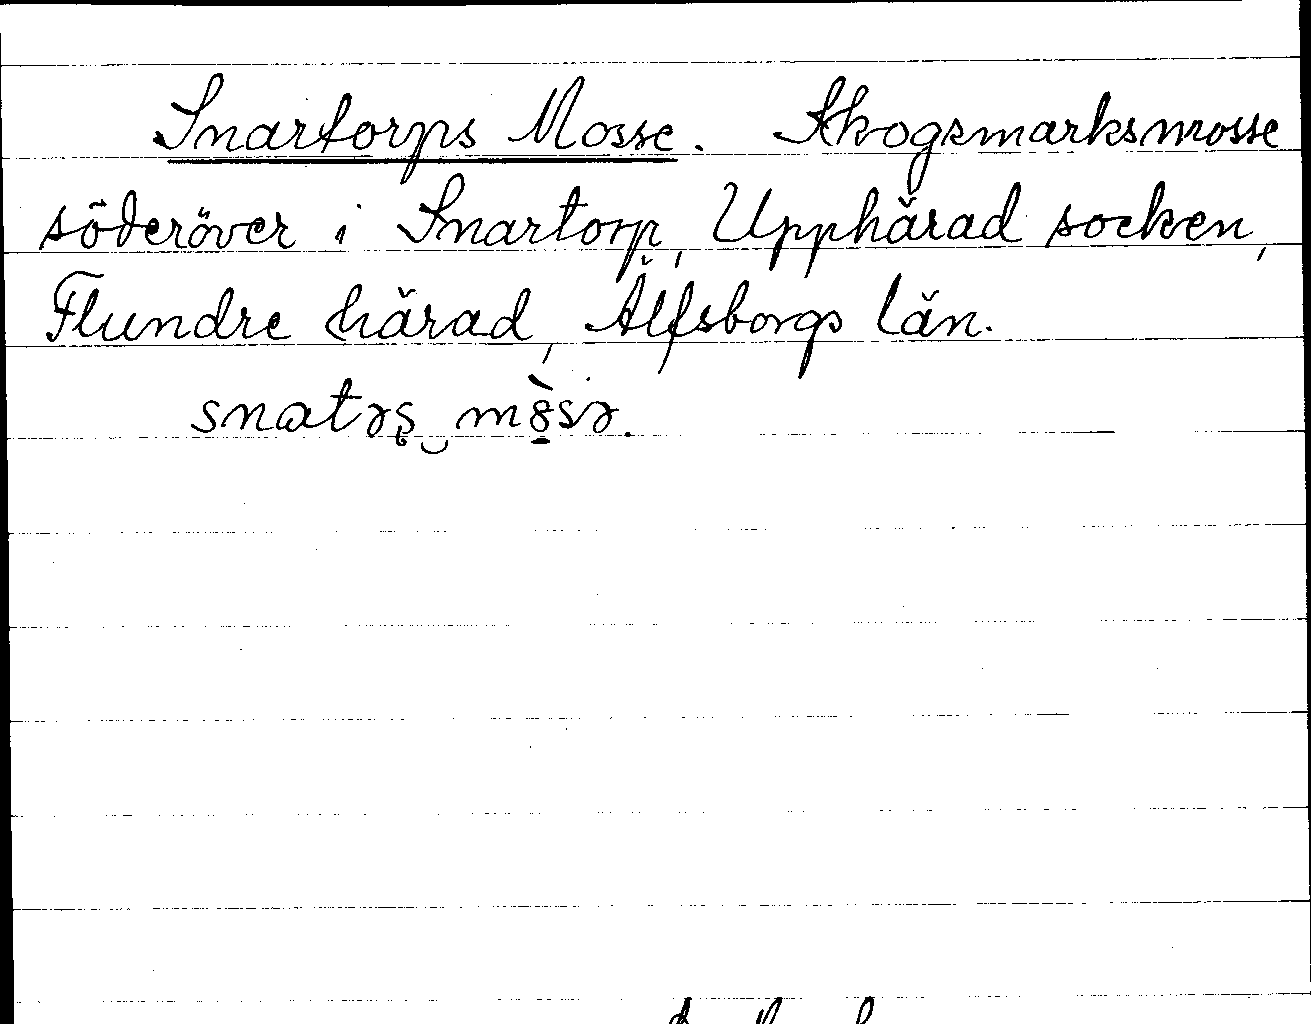 Snartorps Mosse. Skogsmarksmosse
söderöver i Snartorp, Upphärad socken,
Flundre härad, Älfsborgs län.
snatəʂ‿m8̠̀sə.